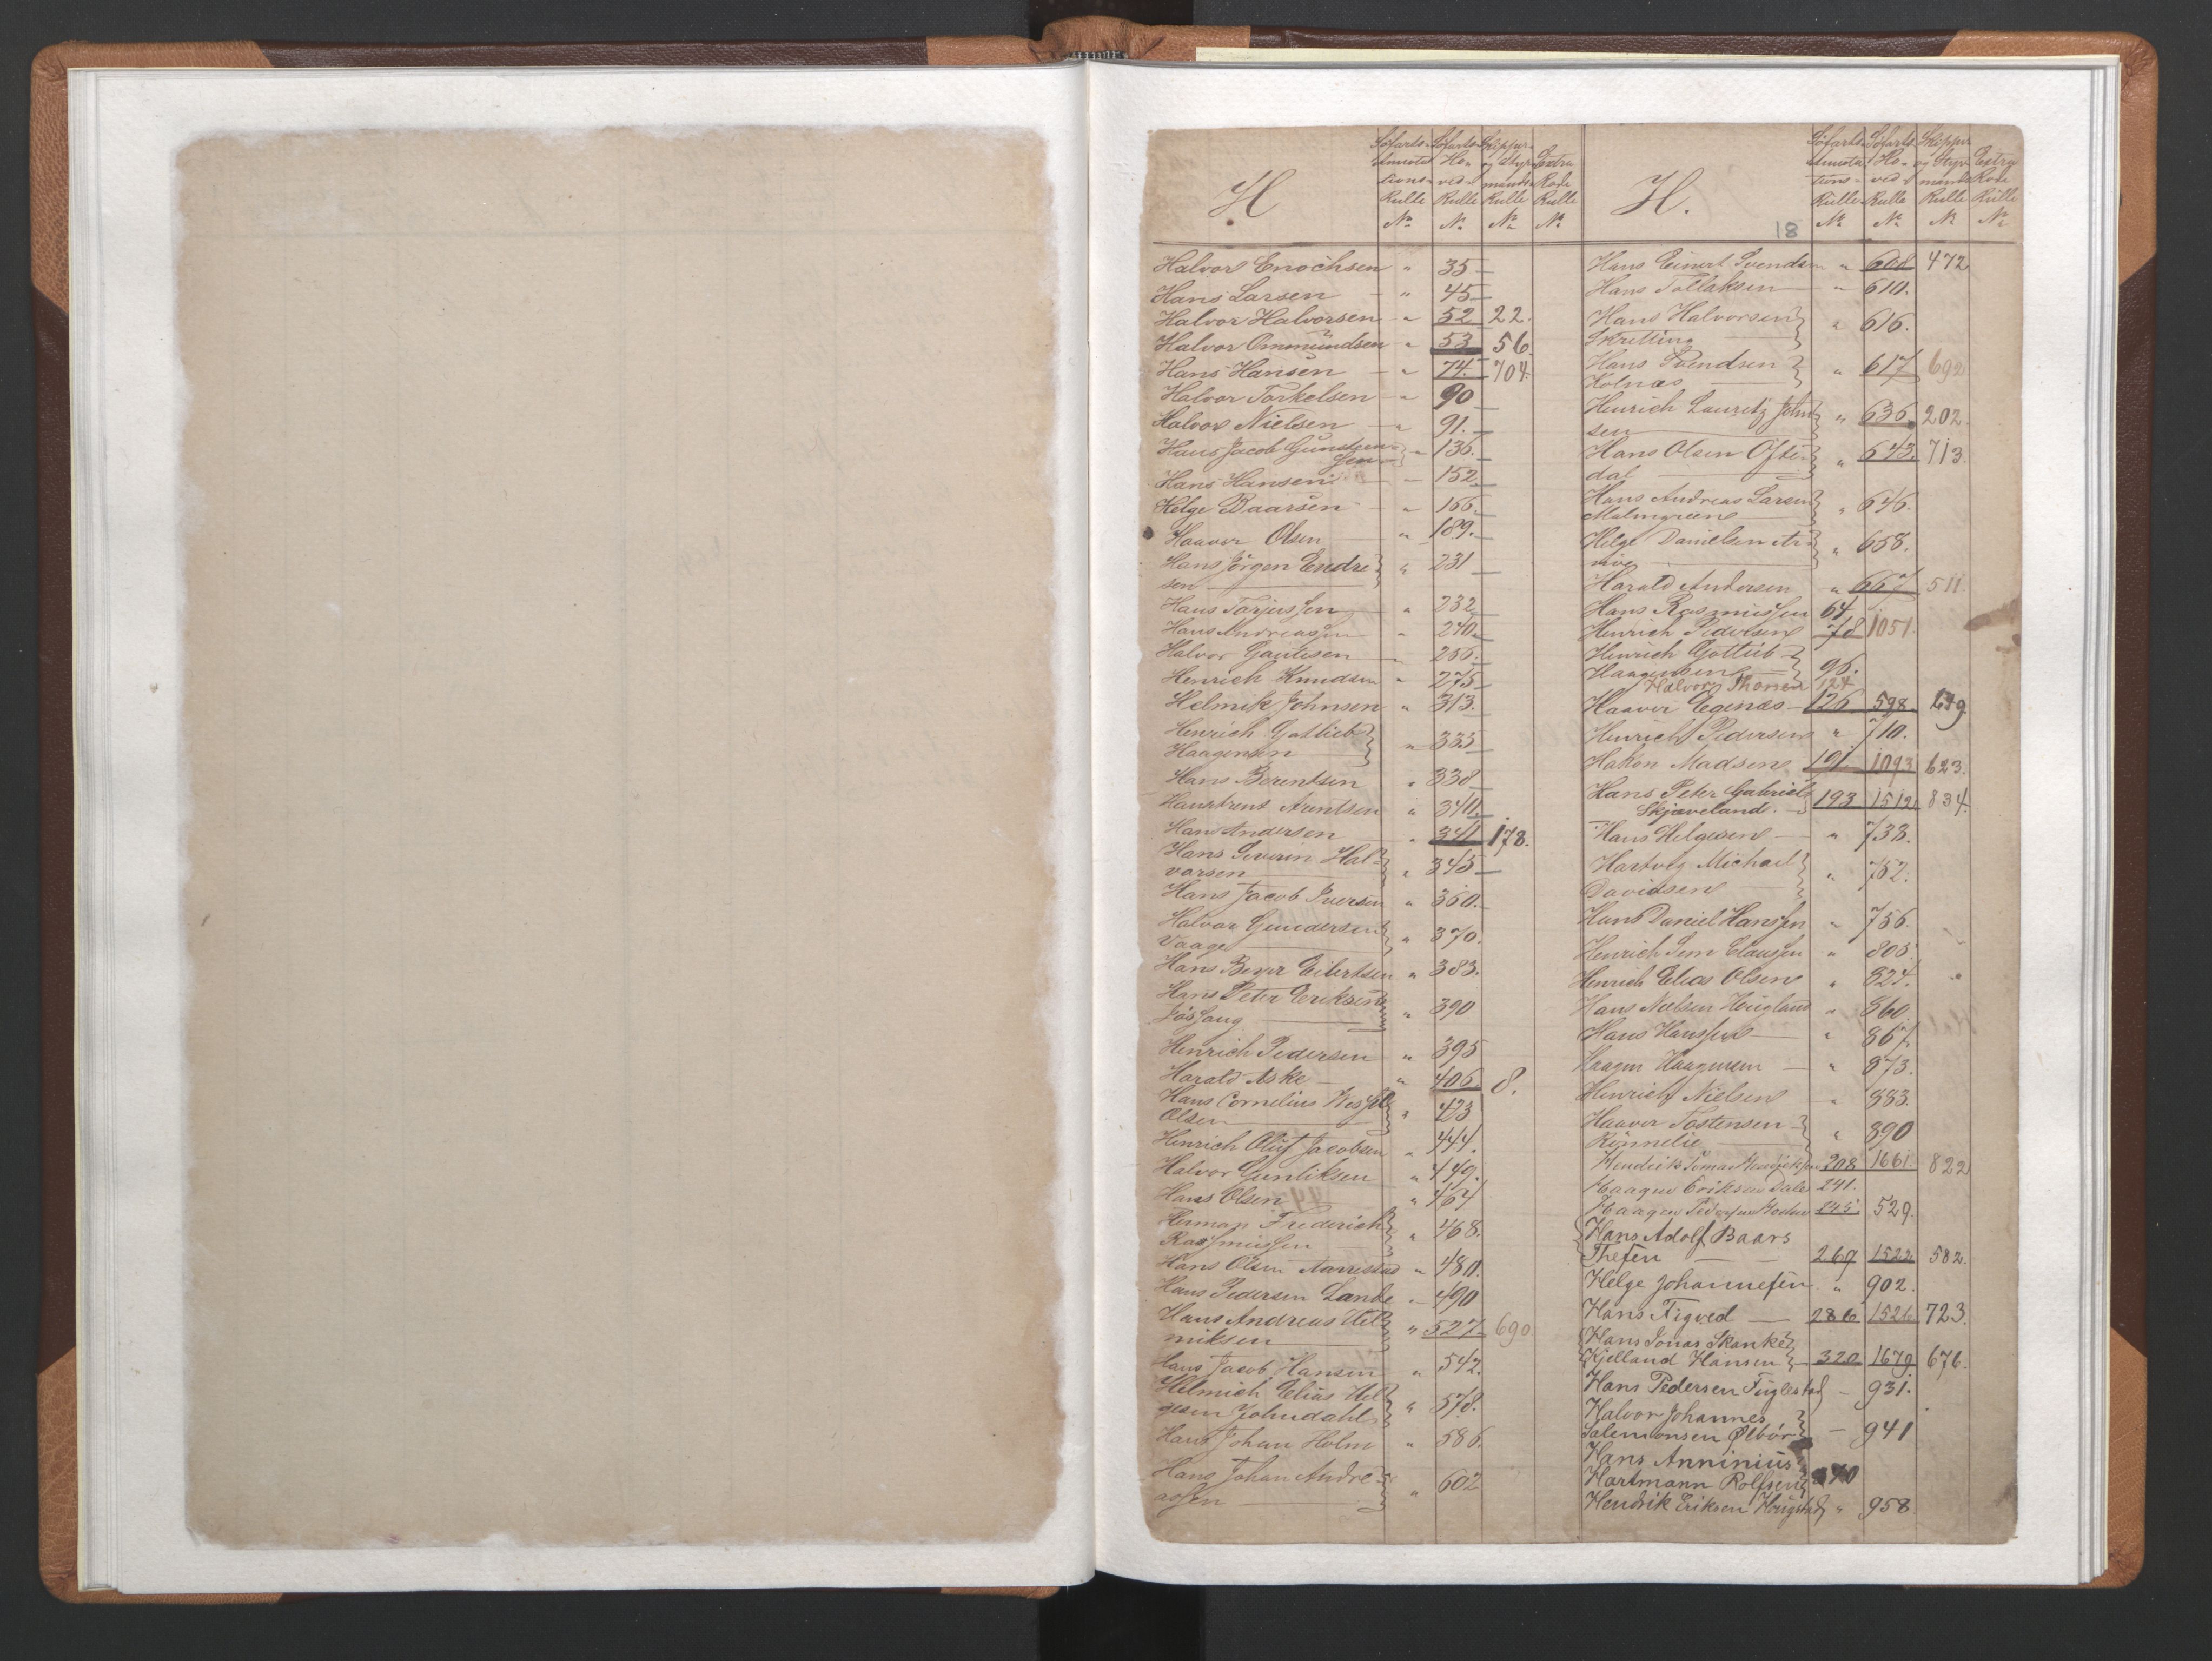 H
Søfarts- Annota- tions- Rulle No
Søfarts- Ho- ved- Rulle No
Skipper- og Styr- mands- Rulle No
Extra Rode Rulle No
Halvor Enochsen " 35
Hans Larsen " 45
Halvor Halvorsen " 52 22.
Halvor Ommundsen " 53 56
Hans Hansen " 74. 704.
Halvor Torkelsen " 90
Halvor Nielsen " 91.
Hans Jacob Gundersen " 136.
Hans Hansen 152
Helge Baarsen " 166.
Haaver Olsen " 189.
Hans Jörgen Endre-
sen " 231
Hans Tarjussen " 232
Hans Andreassen " 240
Halvor Gautesen 266.
Henrich Knudsen " 275
Helmik Johnsen " 313.
Henrich Gotlieb
Haagensen " 333
Hans Berentsen " 338
Arentsen " 340.
Hans Andersen " 341 178.
Hans Severin Hal-
vorsen " 345
Hans Jacob Iversen " 360.
Halvor Gundersen
Vaage " 370.
Hans Beyer Eilertsen " 383.
Hans Peter Eriksen
Jösfang " 390
Henrich Pedersen " 395
Harald Aske " 406. 8.
Hans Cornelius
Olsen " 423
Henrich Oluf Jacobsen " 444.
Halvor Gunliksen " 449.
Hans Olsen " 464
Herman Frederich
Rasmussen " 468.
Hans Olsen Aarrestad " 480.
Hans Pedersen Lande " 490
Hans Andreas Hel-
miksen " 527 690
Hans Jacob Hansen " 542.
Helmich Elias Hel-
gesen Johndahl " 578.
Hans Johan Holm " 586.
Hans Johan Andre-
assen " 602
H.
18
Søfarts- Annota- tions- Rulle No
Søfarts- Ho- ved- Rulle No
Skipper og Styr- mands Rulle No
Extra Rode Rulle No
Hans Einert Svendsen " 608 472
Hans Tollaksen " 610.
Hans Halvorsen
Skretting " 616.
Hans Svendsen
Kolnæs " 617 692
Henrich Lauritz John-
sen " 636. 202.
Hans Olsen Ofte-
dal " 643. 713.
Hans Andreas Larsen
Malmgreen " 646.
Helge Danielsen
" 658.
Harald Andersen " 667 511.
Hans Rasmussen 64
Henrich Pedersen 78 1051.
Henrich Gottlieb
Haagensen 96.
Halvor Thorsen 124
Haaver Egenæs 126 598
Henrich Pedersen " 710.
Hakon Madsen 191. 1093 623.
Hans Peter Gabriel
Skjæveland. 193 1512 834.
Hans Helgesen " 738.
Hartvig Michael
Davidsen " 752.
Hans Daniel Hanssen " 756.
Henrich Sem Claussen " 805.
Henrich Elias Olsen " 824.
Hans Nielsen Hougland " 860.
Hans Hanssen " 867.
Haagen Haagensen " 873.
Henrich Nielsen " 883.
Haaver Tostensen
Rönnelie " 890
Hendrik Tomas 208 1661 822
Haagen Eriksen Dale 241.
Haagen Pedersen 245 529.
Hans Adolf Baars
Thesen 269 1522 582.
Helge Johannesen " 902.
Hans Tigved 286 1526 723.
Hans Jonas Skanke
Kjelland Hansen 320 1679 676.
Hans Pedersen Fuglestad 931.
Halvor Johannes
Salemonsen Ølbör 941
Hans Anninius
Hartmann Rolfsen
Hendrik Eriksen Hougstad " 958